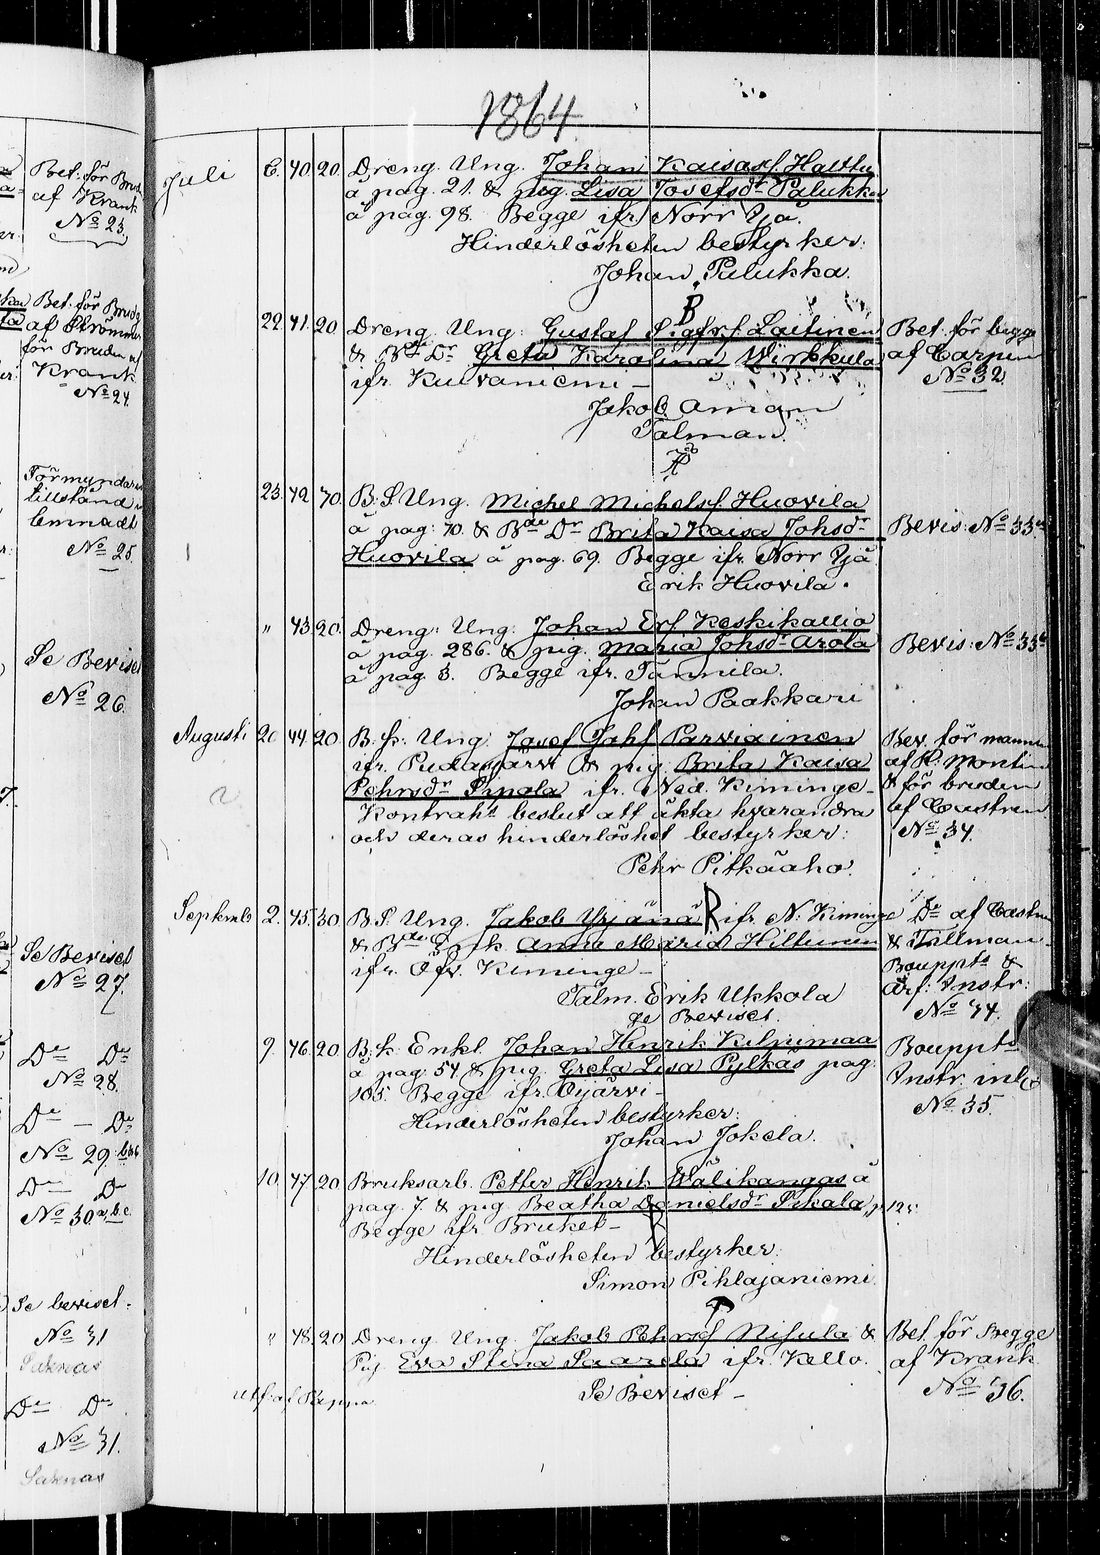 1864
Bet. för Brud.
af Krank
No 23.
Bet. för Brud.
af Strömmer
för Bruden af
Krank
No 24.
Förmyndare
tillstånd
lemnadt
No 25.
Se Beviset
No 26.
Se Beviset
No 27.
Do Do
No 28.
Do — Do
No 29.
Do — Do
No 30 a,b,c.
Se beviset.
No 31
Saknas
Do Do
No 31.
Saknas
Juli 6. 40. 20. Dreng. Ung. Johan Kaisasf. Halttu
å pag. 21. & pig. Lisa Josefsdr Palukka
å pag. 98. Begge ifr. Norr Yjå.
Hinderlösheten bestyrker:
Johan Palukka.
B
22. 41. 20 Dreng. Ung. Gustaf Sigfrsf. Laitinen Bet. för begge
& Bde Dr Greta Karolina Wirkkula af Carpen
ifr. Kuivaniemi — No 32.
Jakob Aman
Talman.
23. 42 70. B. S. Ung. Michel Michelsf. Huovila
å pag. 70. & Bde Dr Brita Kaisa Johsdr Bevis. No 33.a
Huovila å pag. 69. Begge ifr. Norr Yjå
Erik Huovila.
" 43. 20. Dreng. Ung. Johan Ersf Keskikallio
å pag. 286. & pig. Maria Johsdr Arola Bevis. No 33b
å pag. 3. Begge ifr. Tannila.
Johan Paakkari
Augusti 20 44 20. B. k. Ung. Josef Johsf Parviainen Bev. för mannen
ifr. Pudasjärvi & pig. Brita Kaisa af H. Montin
Pehrsdr Sipola ifr. Ned. Kiminge — & för bruden
Kontrahts beslut att äkta hvarandra af Castren
och deras hinderlöshet bestyrker: No 34.
Pehr Pitkäaho.
Septemb 2. 45. 30 B. S. Ung. Jakob Yrjänä R ifr. N. Kiminge Do af Castren
& Bde Enk. Anna Maria Hiltunen & Tallman
ifr. Öfv. Kiminge — Bouppts &
Talm. Erik Ukkola Arf: Instr:
se Beviset. No 34.
9. 46. 20 B. k. Enkl. Johan Henrik Kilpimaa Bouppts
å pag. 54 & pig. Greta Lisa Pylkäs pag. Instr. inl.
105. Begge ifr. Oijärvi — No 35.
Hinderlösheten bestyrker:
Johan Jokela.
10. 47. 20 Bruksarb. Petter Henrik Wälikangas å
pag. 7. & pig. Beatha Danielsdr Sikala, p. 125.
Begge ifr. Bruket —
Hinderlösheten bestyrker:
Simon Pihlajaniemi.
" 48. 20 Dreng. Ung. Jakob Pehrsf Nisula & Bet. för Begge
Pig. Eva Stina Saarela ifr. Kello. af Krank
Se Beviset — No 36.